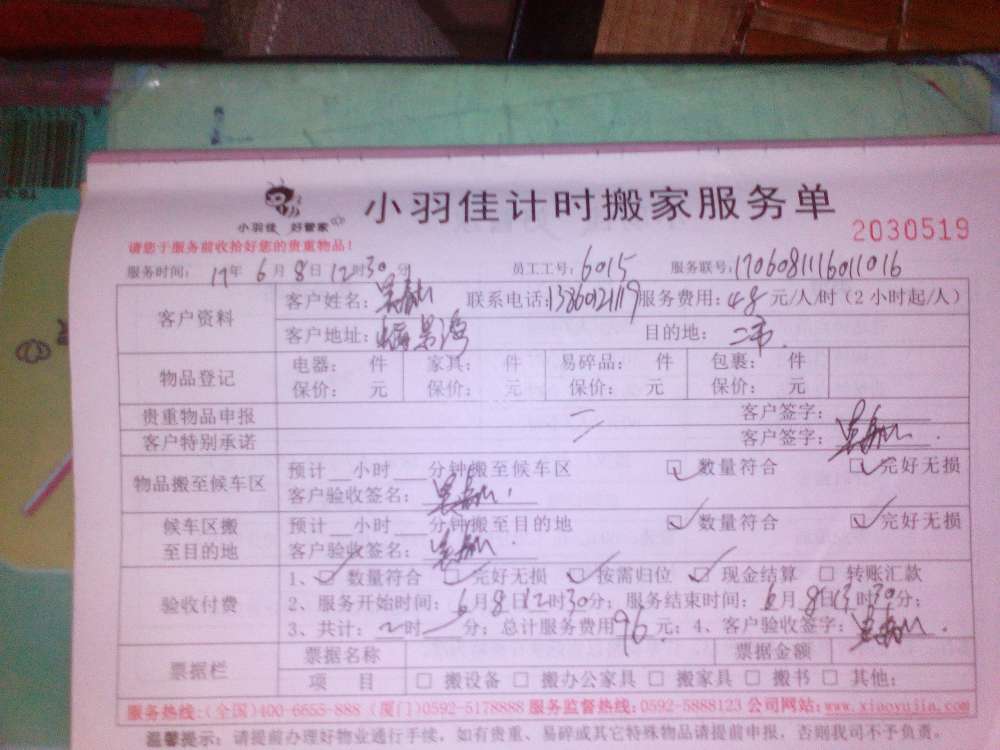 小羽佳 好管家
小羽佳计时搬家服务单
2030519
请您于服务前收拾好您的贵重物品!
服务时间: 17年6月8日12时30分 员工工号: 6015 服务联号: 1706081116011016
客户资料 客户姓名: 联系电话: 13860121119 服务费用: 48元/人/时(2小时起/人)
客户地址: 景湾 目的地: 二市.
物品登记 电器: 件 家具: 件 易碎品: 件 包裹: 件
保价: 元 保价: 元 保价: 元 保价: 元
贵重物品申报 客户签字:
客户特别承诺 客户签字:
物品搬至候车区 预计__小时__分钟搬至候车区 ☑ 数量符合 ☑ 完好无损
客户验收签名:
候车区搬至目的地 预计__小时__分钟搬至目的地 ☑ 数量符合 ☑ 完好无损
客户验收签名:
验收付费 1、☑ 数量符合 ☑ 完好无损 ☑ 按需归位 ☑ 现金结算 □ 转账汇款
2、服务开始时间: 6月8日12时30分; 服务结束时间: 6月8日13时30分;
3、共计: 二时一分; 总计服务费用96元; 4、客户验收签字:
票据栏 票据名称 票据金额
项 目 □ 搬设备 □ 搬办公家具 □ 搬家具 □ 搬书 □ 其他:
服务热线:(全国)400-6555-888 (厦门)0592-5178888 服务监督热线:0592-5888123 公司网站:www.xiaoyujia.com
温馨提示: 请提前办理好物业通行手续, 如有贵重、易碎或其它特殊物品请提前申报, 否则我司不予负责。